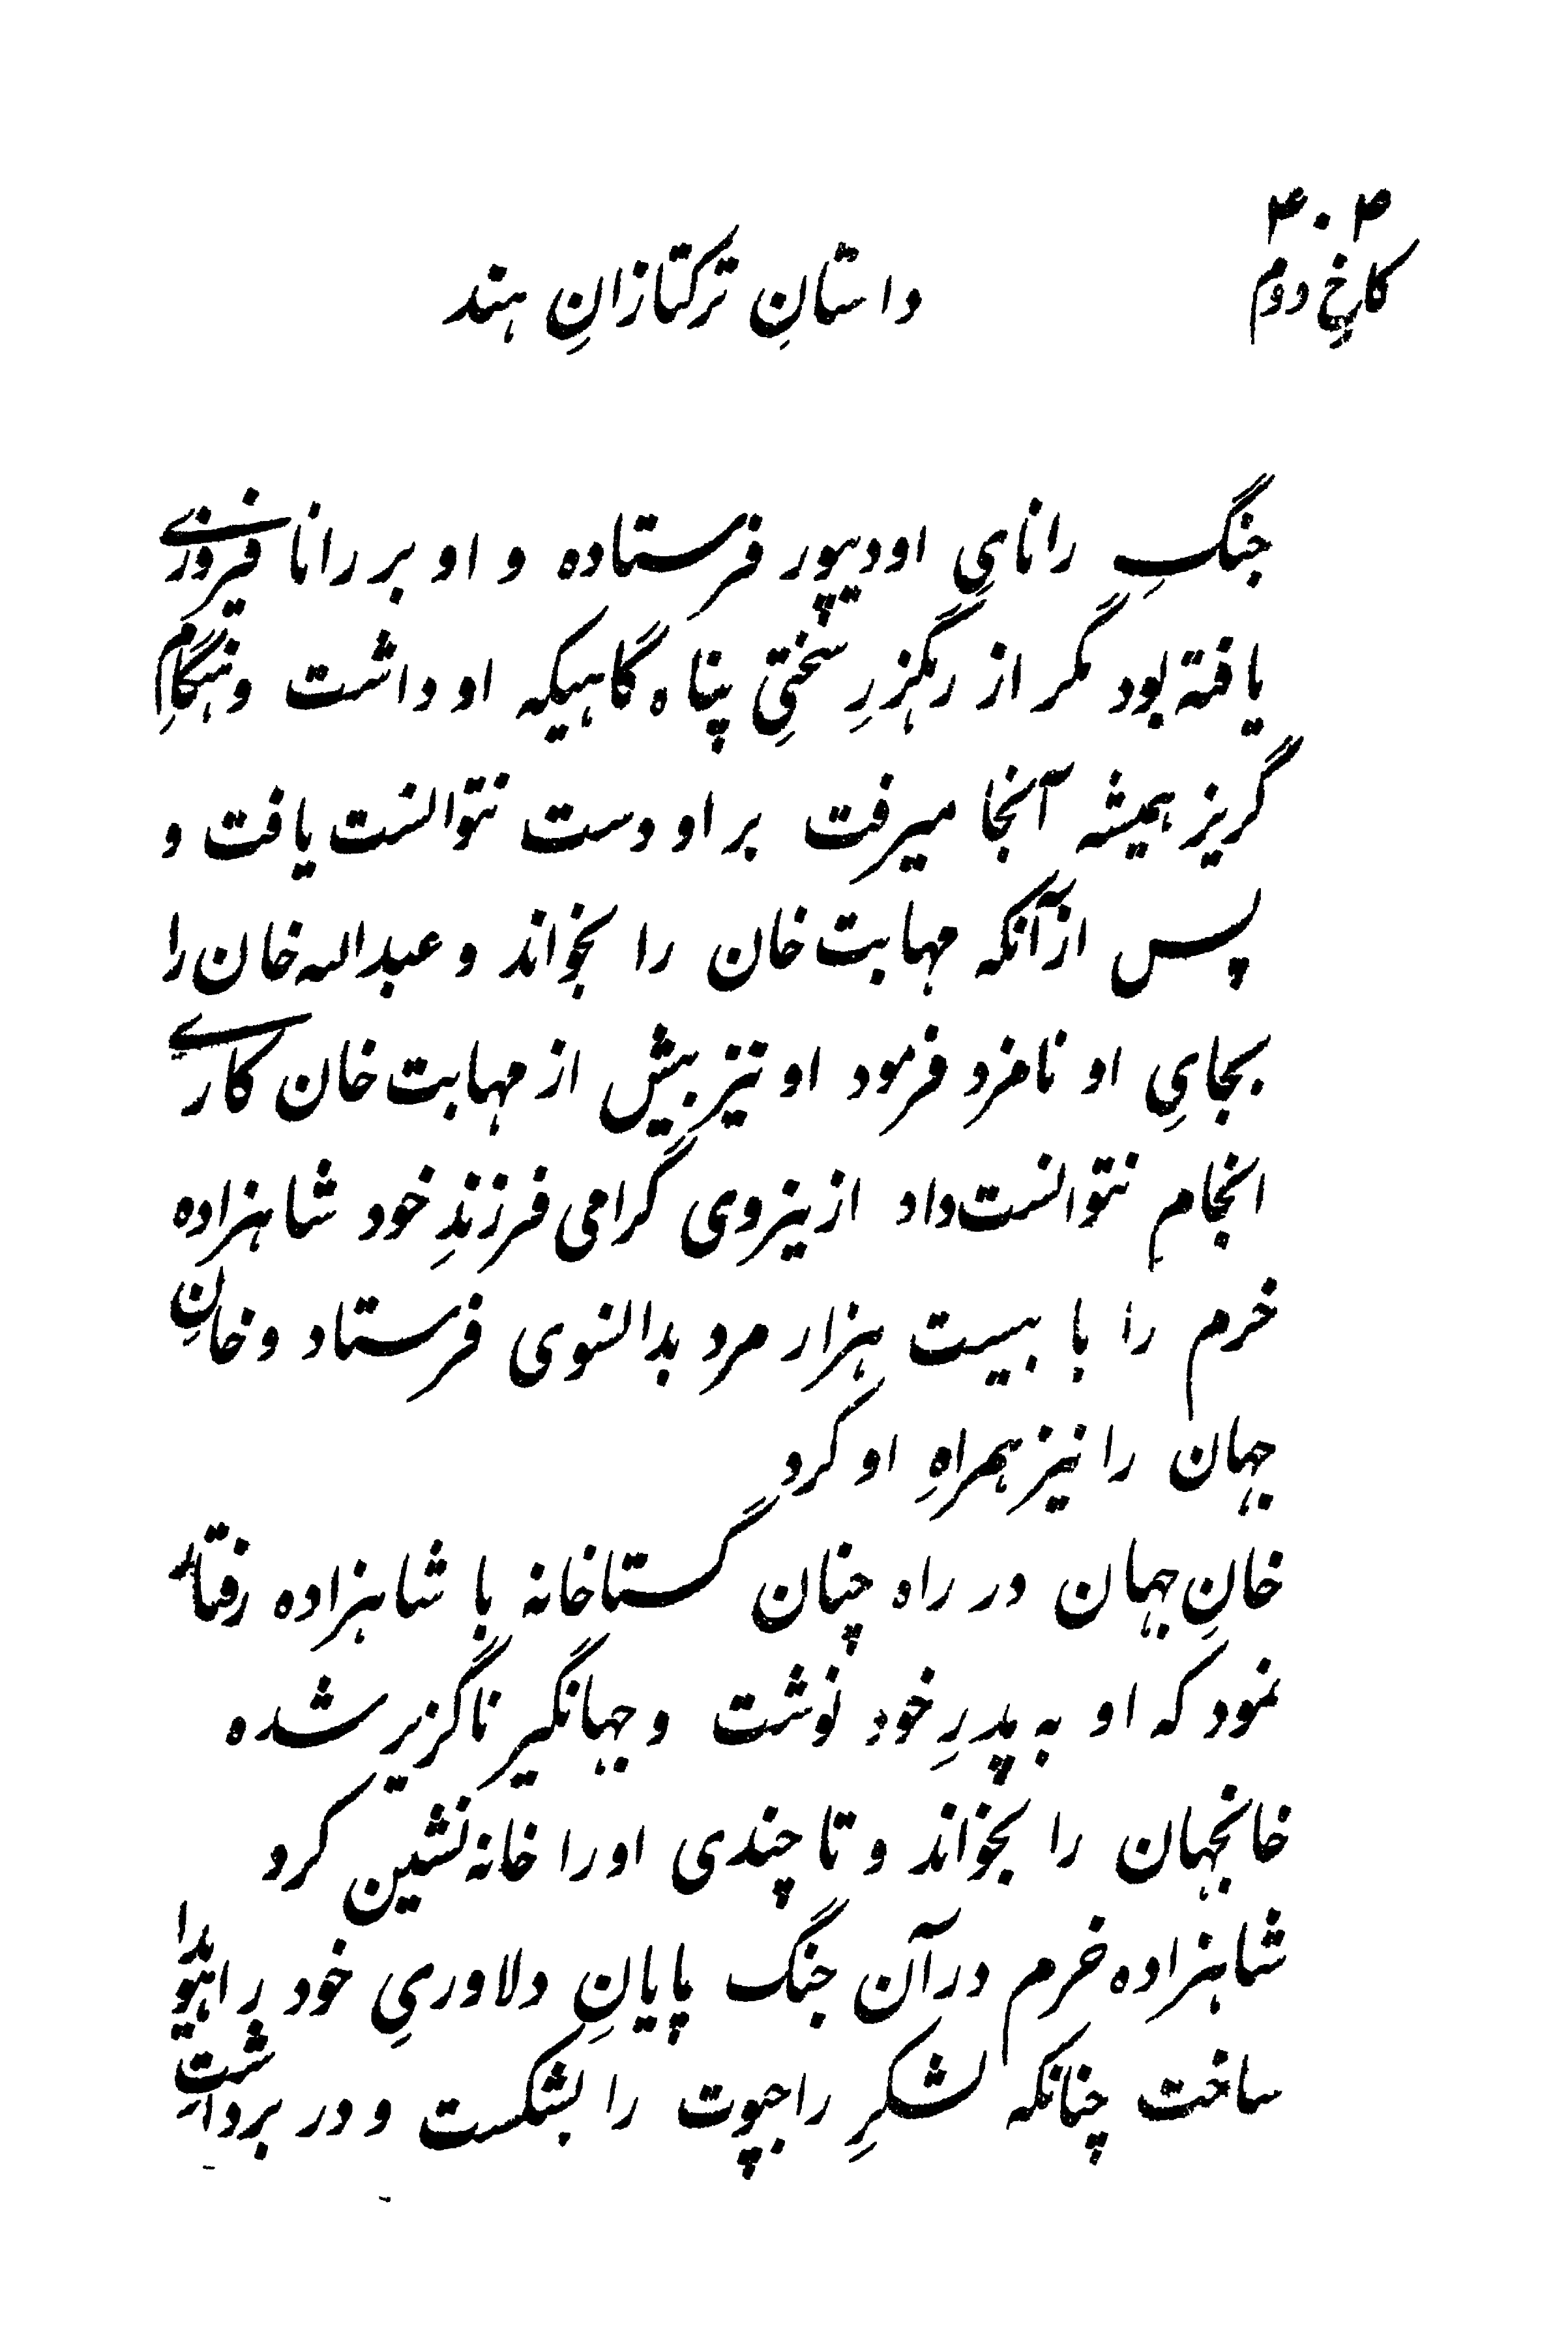 ۴۰۴
کاخِ دوم
داستانِ ترکتازانِ هند
جنگِ رانایِ اودیپور فرستاده و او بر رانا فیروزے
یافته بود مگر از رهگزرِ سختیِ پناه گاهیکه او داشت و هنگامِ
گریز همیشه آنجا میرفت بر او دست نتوانست یافت و
پس ازآنکه مهابت خان را بخواند و عبدالله خان را
بجایِ او نامزد فرمود او نیز بیش از مهابت خان کارے
انجام نتوانست داد ازینروی گرامی فرزندِ خود شاهزاده
خرم را با بیست هزار مرد بدانسوی فرستاد و خانِ
جهان را نیز همراهِ او کرد
خانِ جهان در راه چنان گستاخانه با شاهزاده رفتار
نمود که او به پدرِ خود نوشت و جهانگیر ناگزیر شده
خانجهان را بخواند و تا چندی اورا خانه نشین کرد
شاهزاده خرم درآن جنگ پایانِ دلاوریِ خود را هویدا
ساخت چنانکه لشکرِ راجپوت را بشکست و در برداشتِ